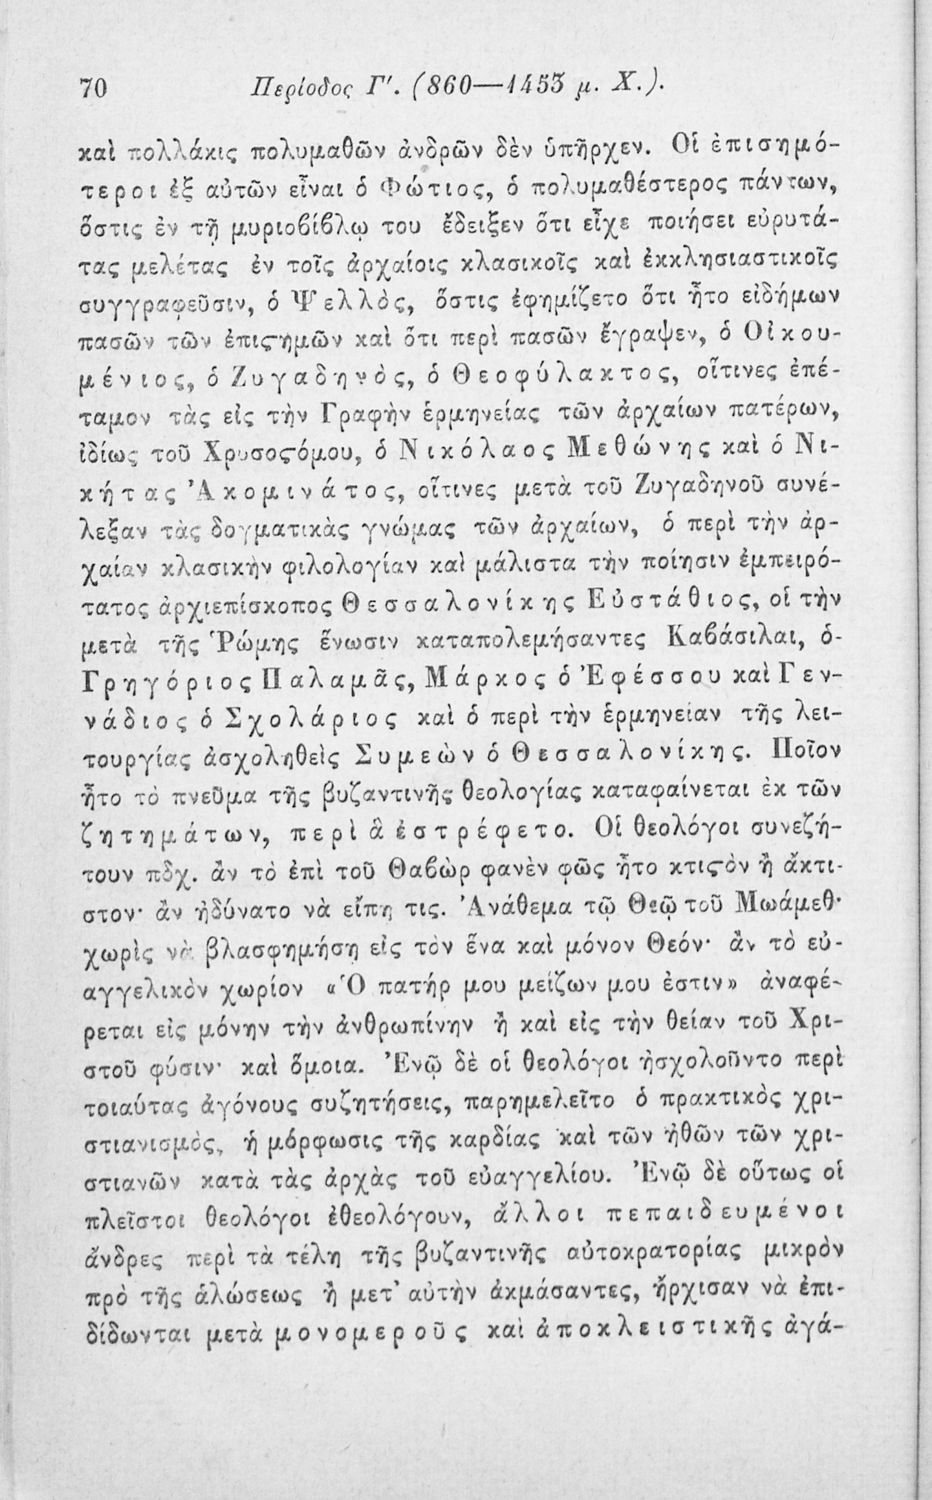 70 Περίοδος Γʹ. (860—1453 μ. Χ.).
καὶ πολλάκις πολυμαθῶν ἀνδρῶν δὲν ὑπῆρχεν. Οἱ ἐπισημό-
τεροι ἐξ αὐτῶν εἶναι ὁ Φώτιος, ὁ πολυμαθέστερος πάντων,
ὅστις ἐν τῇ μυριοβίβλῳ του ἔδειξεν ὅτι εἶχε ποιήσει εὐρυτά-
τας μελέτας ἐν τοῖς ἀρχαίοις κλασικοῖς καὶ ἐκκλησιαστικοῖς
συγγραφεῦσιν, ὁ Ψελλὸς, ὅστις ἐφημίζετο ὅτι ἦτο εἰδήμων
πασῶν τῶν ἐπιϛημῶν καὶ ὅτι περὶ πασῶν ἔγραψεν, ὁ Οἰκου-
μένιος, ὁ Ζυγαδηνὸς, ὁ Θεοφύλακτος, οἵτινες ἐπέ-
ταμον τὰς εἰς τὴν Γραφὴν ἑρμηνείας τῶν ἀρχαίων πατέρων,
ἰδίως τοῦ Χρυσοϛόμου, ὁ Νικόλαος Μεθώνης καὶ ὁ Νι-
κήτας Ἀκομινάτος, οἵτινες μετὰ τοῦ Ζυγαδηνοῦ συνέ-
λεξαν τὰς δογματικὰς γνώμας τῶν ἀρχαίων, ὁ περὶ τὴν ἀρ-
χαίαν κλασικὴν φιλολογίαν καὶ μάλιστα τὴν ποίησιν ἐμπειρό-
τατος ἀρχιεπίσκοπος Θεσσαλονίκης Εὐστάθιος, οἱ τὴν
μετὰ τῆς Ῥώμης ἕνωσιν καταπολεμήσαντες Καβάσιλαι, ὁ-
Γρηγόριος Παλαμᾶς, Μάρκος ὁ Ἐφέσσου καὶ Γεν-
νάδιος ὁ Σχολάριος καὶ ὁ περὶ τὴν ἑρμηνείαν τῆς λει-
τουργίας ἀσχοληθεὶς Συμεὼν ὁ Θεσσαλονίκης. Ποῖον
ἦτο τὸ πνεῦμα τῆς βυζαντινῆς θεολογίας καταφαίνεται ἐκ τῶν
ζητημάτων, περὶ ἃ ἐστρέφετο. Οἱ θεολόγοι συνεζή-
τουν πδχ. ἂν τὸ ἐπὶ τοῦ Θαβὼρ φανὲν φῶς ἦτο κτιϛὸν ἢ ἄκτι-
στον· ἂν ἠδύνατο νὰ εἴπῃ τις. Ἀνάθεμα τῷ Θεῷ τοῦ Μωάμεθ·
χωρὶς νὰ βλασφημήσῃ εἰς τὸν ἕνα καὶ μόνον Θεόν· ἂν τὸ εὐ-
αγγελικὸν χωρίον «Ὁ πατήρ μου μείζων μου ἐστιν» ἀναφέ-
ρεται εἰς μόνην τὴν ἀνθρωπίνην ἢ καὶ εἰς τὴν θείαν τοῦ Χρι-
στοῦ φύσιν· καὶ ὅμοια. Ἐνῷ δὲ οἱ θεολόγοι ἠσχολοῦντο περὶ
τοιαύτας ἀγόνους συζητήσεις, παρημελεῖτο ὁ πρακτικὸς χρι-
στιανισμὸς, ἡ μόρφωσις τῆς καρδίας καὶ τῶν ἠθῶν τῶν χρι-
στιανῶν κατὰ τὰς ἀρχὰς τοῦ εὐαγγελίου. Ἐνῷ δὲ οὕτως οἱ
πλεῖστοι θεολόγοι ἐθεολόγουν, ἄλλοι πεπαιδευμένοι
ἄνδρες περὶ τὰ τέλη τῆς βυζαντινῆς αὐτοκρατορίας μικρὸν
πρὸ τῆς ἁλώσεως ἢ μετ' αὐτὴν ἀκμάσαντες, ἤρχισαν νὰ ἐπι-
δίδωνται μετὰ μονομεροῦς καὶ ἀποκλειστικῆς ἀγά-